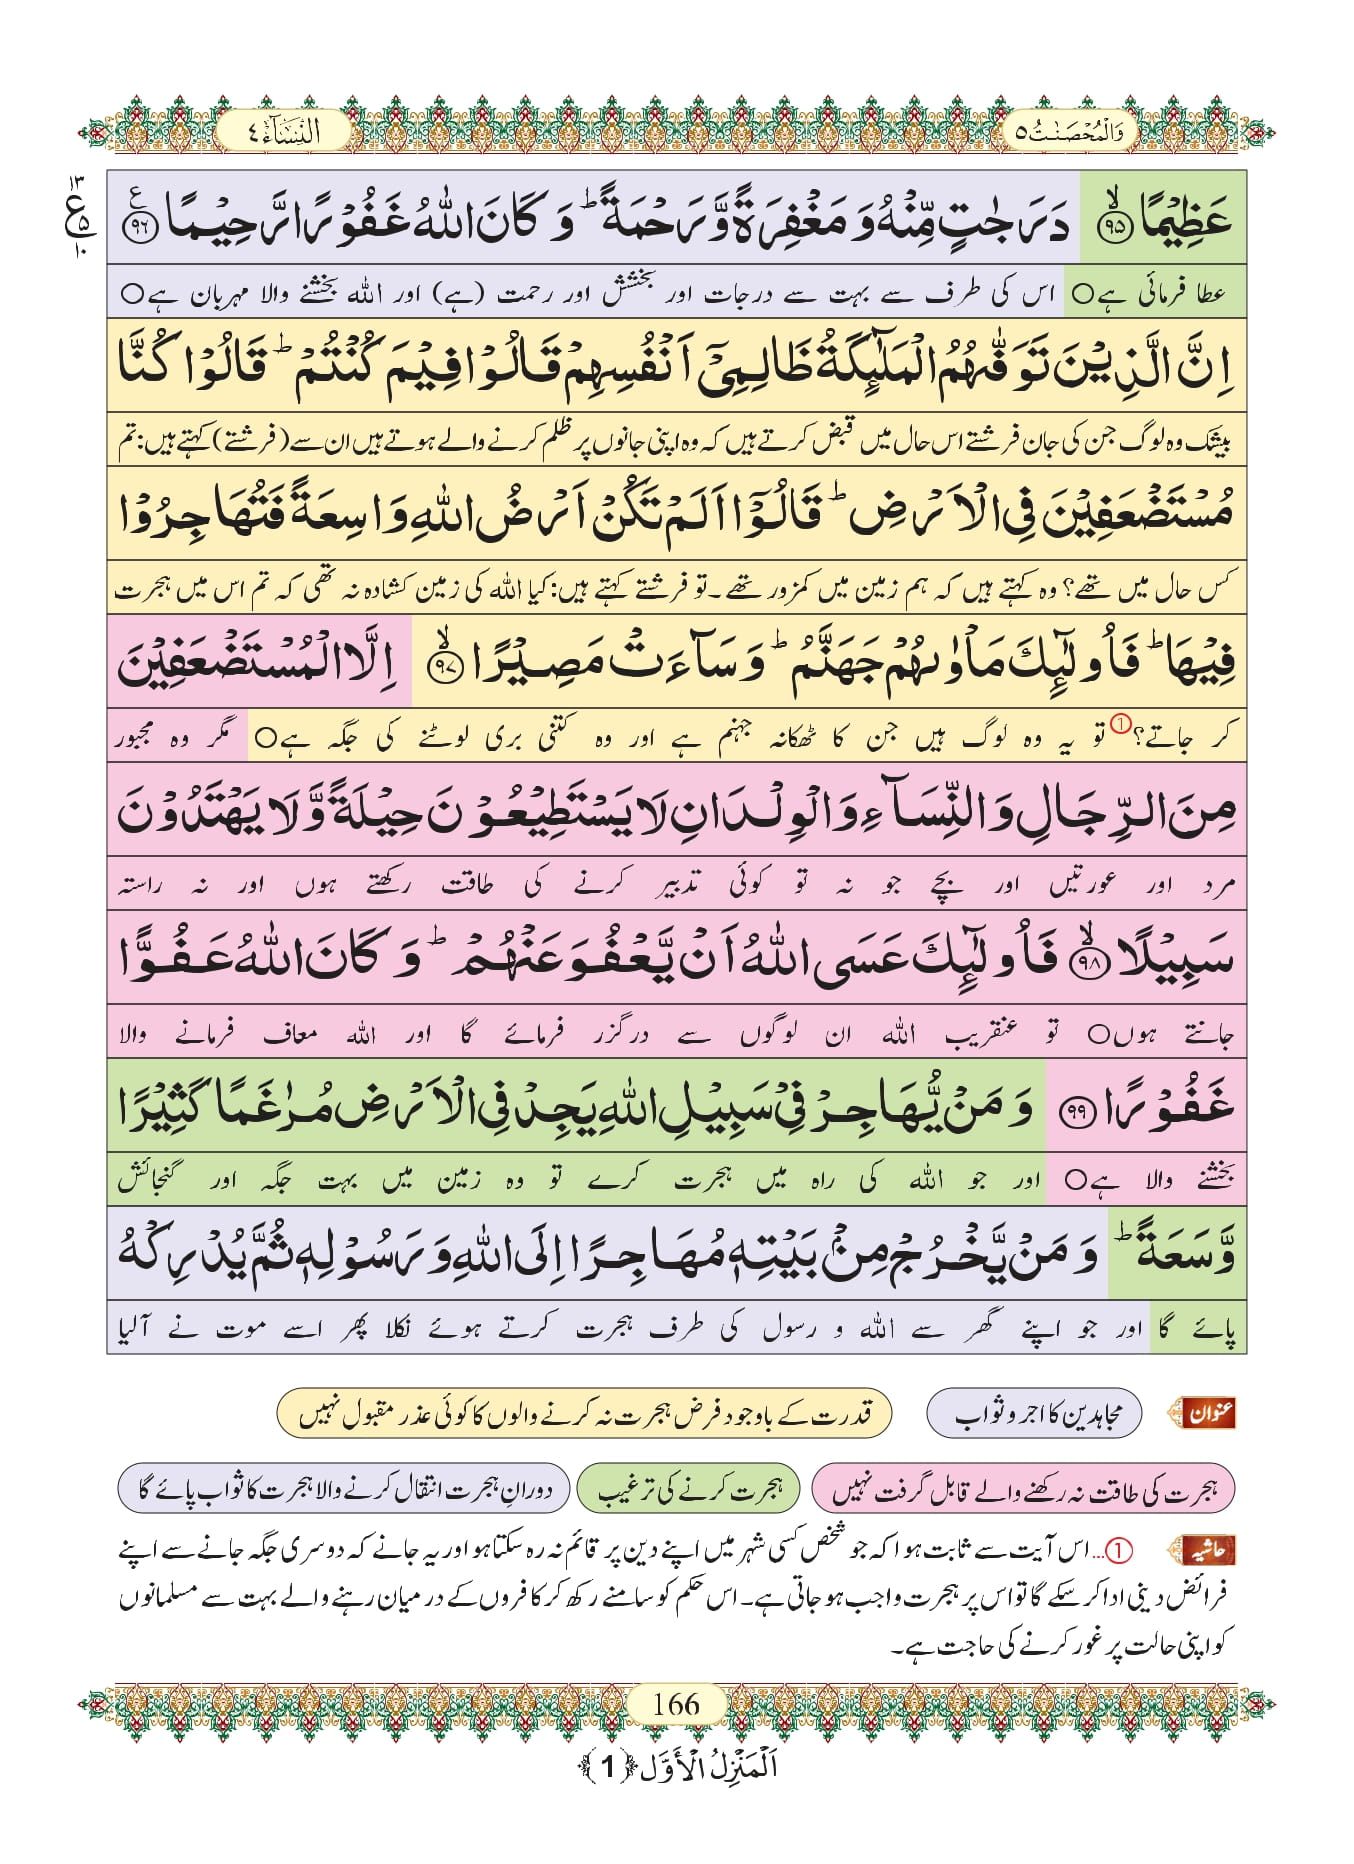 وَالْمُحْصَنٰتُ ٥
النِّسَآء ٤
عَظِيْمًا ۙ﴿۹۵﴾ دَرَجٰتٍ مِّنْهُ وَ مَغْفِرَةً وَّ رَحْمَةً ؕ وَ كَانَ اللّٰهُ غَفُوْرًا رَّحِيْمًا ﴿۹۶﴾ ع
١٣
ع ٥
١٠
عطا فرمائی ہے○ اس کی طرف سے بہت سے درجات اور بخشش اور رحمت (ہے) اور اللہ بخشنے والا مہربان ہے○
اِنَّ الَّذِيْنَ تَوَفّٰىهُمُ الْمَلٰٓئِكَةُ ظَالِمِيْۤ اَنْفُسِهِمْ قَالُوْا فِيْمَ كُنْتُمْ ؕ قَالُوْا كُنَّا
بیشک وہ لوگ جن کی جان فرشتے اس حال میں قبض کرتے ہیں کہ وہ اپنی جانوں پر ظلم کرنے والے ہوتے ہیں ان سے (فرشتے) کہتے ہیں: تم
مُسْتَضْعَفِيْنَ فِي الْاَرْضِ ؕ قَالُوْۤا اَلَمْ تَكُنْ اَرْضُ اللّٰهِ وَاسِعَةً فَتُهَاجِرُوْا
کس حال میں تھے؟ وہ کہتے ہیں کہ ہم زمین میں کمزور تھے۔ تو فرشتے کہتے ہیں: کیا اللہ کی زمین کشادہ نہ تھی کہ تم اس میں ہجرت
فِيْهَا ؕ فَاُولٰٓئِكَ مَاْوٰىهُمْ جَهَنَّمُ ؕ وَ سَآءَتْ مَصِيْرًا ۙ﴿۹۷﴾ اِلَّا الْمُسْتَضْعَفِيْنَ
کر جاتے؟① تو یہ وہ لوگ ہیں جن کا ٹھکانہ جہنم ہے اور وہ کتنی بری لوٹنے کی جگہ ہے○ مگر وہ مجبور
مِنَ الرِّجَالِ وَ النِّسَآءِ وَ الْوِلْدَانِ لَا يَسْتَطِيْعُوْنَ حِيْلَةً وَّ لَا يَهْتَدُوْنَ
مرد اور عورتیں اور بچے جو نہ تو کوئی تدبیر کرنے کی طاقت رکھتے ہوں اور نہ راستہ
سَبِيْلًا ۙ﴿۹۸﴾ فَاُولٰٓئِكَ عَسَى اللّٰهُ اَنْ يَّعْفُوَ عَنْهُمْ ؕ وَ كَانَ اللّٰهُ عَفُوًّا
جانتے ہوں○ تو عنقریب اللہ ان لوگوں سے درگزر فرمائے گا اور اللہ معاف فرمانے والا
غَفُوْرًا ﴿۹۹﴾ وَ مَنْ يُّهَاجِرْ فِيْ سَبِيْلِ اللّٰهِ يَجِدْ فِي الْاَرْضِ مُرٰغَمًا كَثِيْرًا
بخشنے والا ہے○ اور جو اللہ کی راہ میں ہجرت کرے تو وہ زمین میں بہت جگہ اور گنجائش
وَّ سَعَةً ؕ وَ مَنْ يَّخْرُجْ مِنْۢ بَيْتِهٖ مُهَاجِرًا اِلَى اللّٰهِ وَ رَسُوْلِهٖ ثُمَّ يُدْرِكْهُ
پائے گا اور جو اپنے گھر سے اللہ و رسول کی طرف ہجرت کرتے ہوئے نکلا پھر اسے موت نے آلیا
عنوان مجاہدین کا اجر و ثواب قدرت کے باوجود فرض ہجرت نہ کرنے والوں کا کوئی عذر مقبول نہیں
ہجرت کی طاقت نہ رکھنے والے قابل گرفت نہیں ہجرت کرنے کی ترغیب دورانِ ہجرت انتقال کرنے والا ہجرت کا ثواب پائے گا
حاشیہ ①...اس آیت سے ثابت ہوا کہ جو شخص کسی شہر میں اپنے دین پر قائم نہ رہ سکتا ہو اور یہ جانے کہ دوسری جگہ جانے سے اپنے
فرائض دینی ادا کر سکے گا تو اس پر ہجرت واجب ہو جاتی ہے۔ اس حکم کو سامنے رکھ کر کافروں کے درمیان رہنے والے بہت سے مسلمانوں
کو اپنی حالت پر غور کرنے کی حاجت ہے۔
166
اَلْمَنْزِلُ الْاَوَّل ﴿1﴾